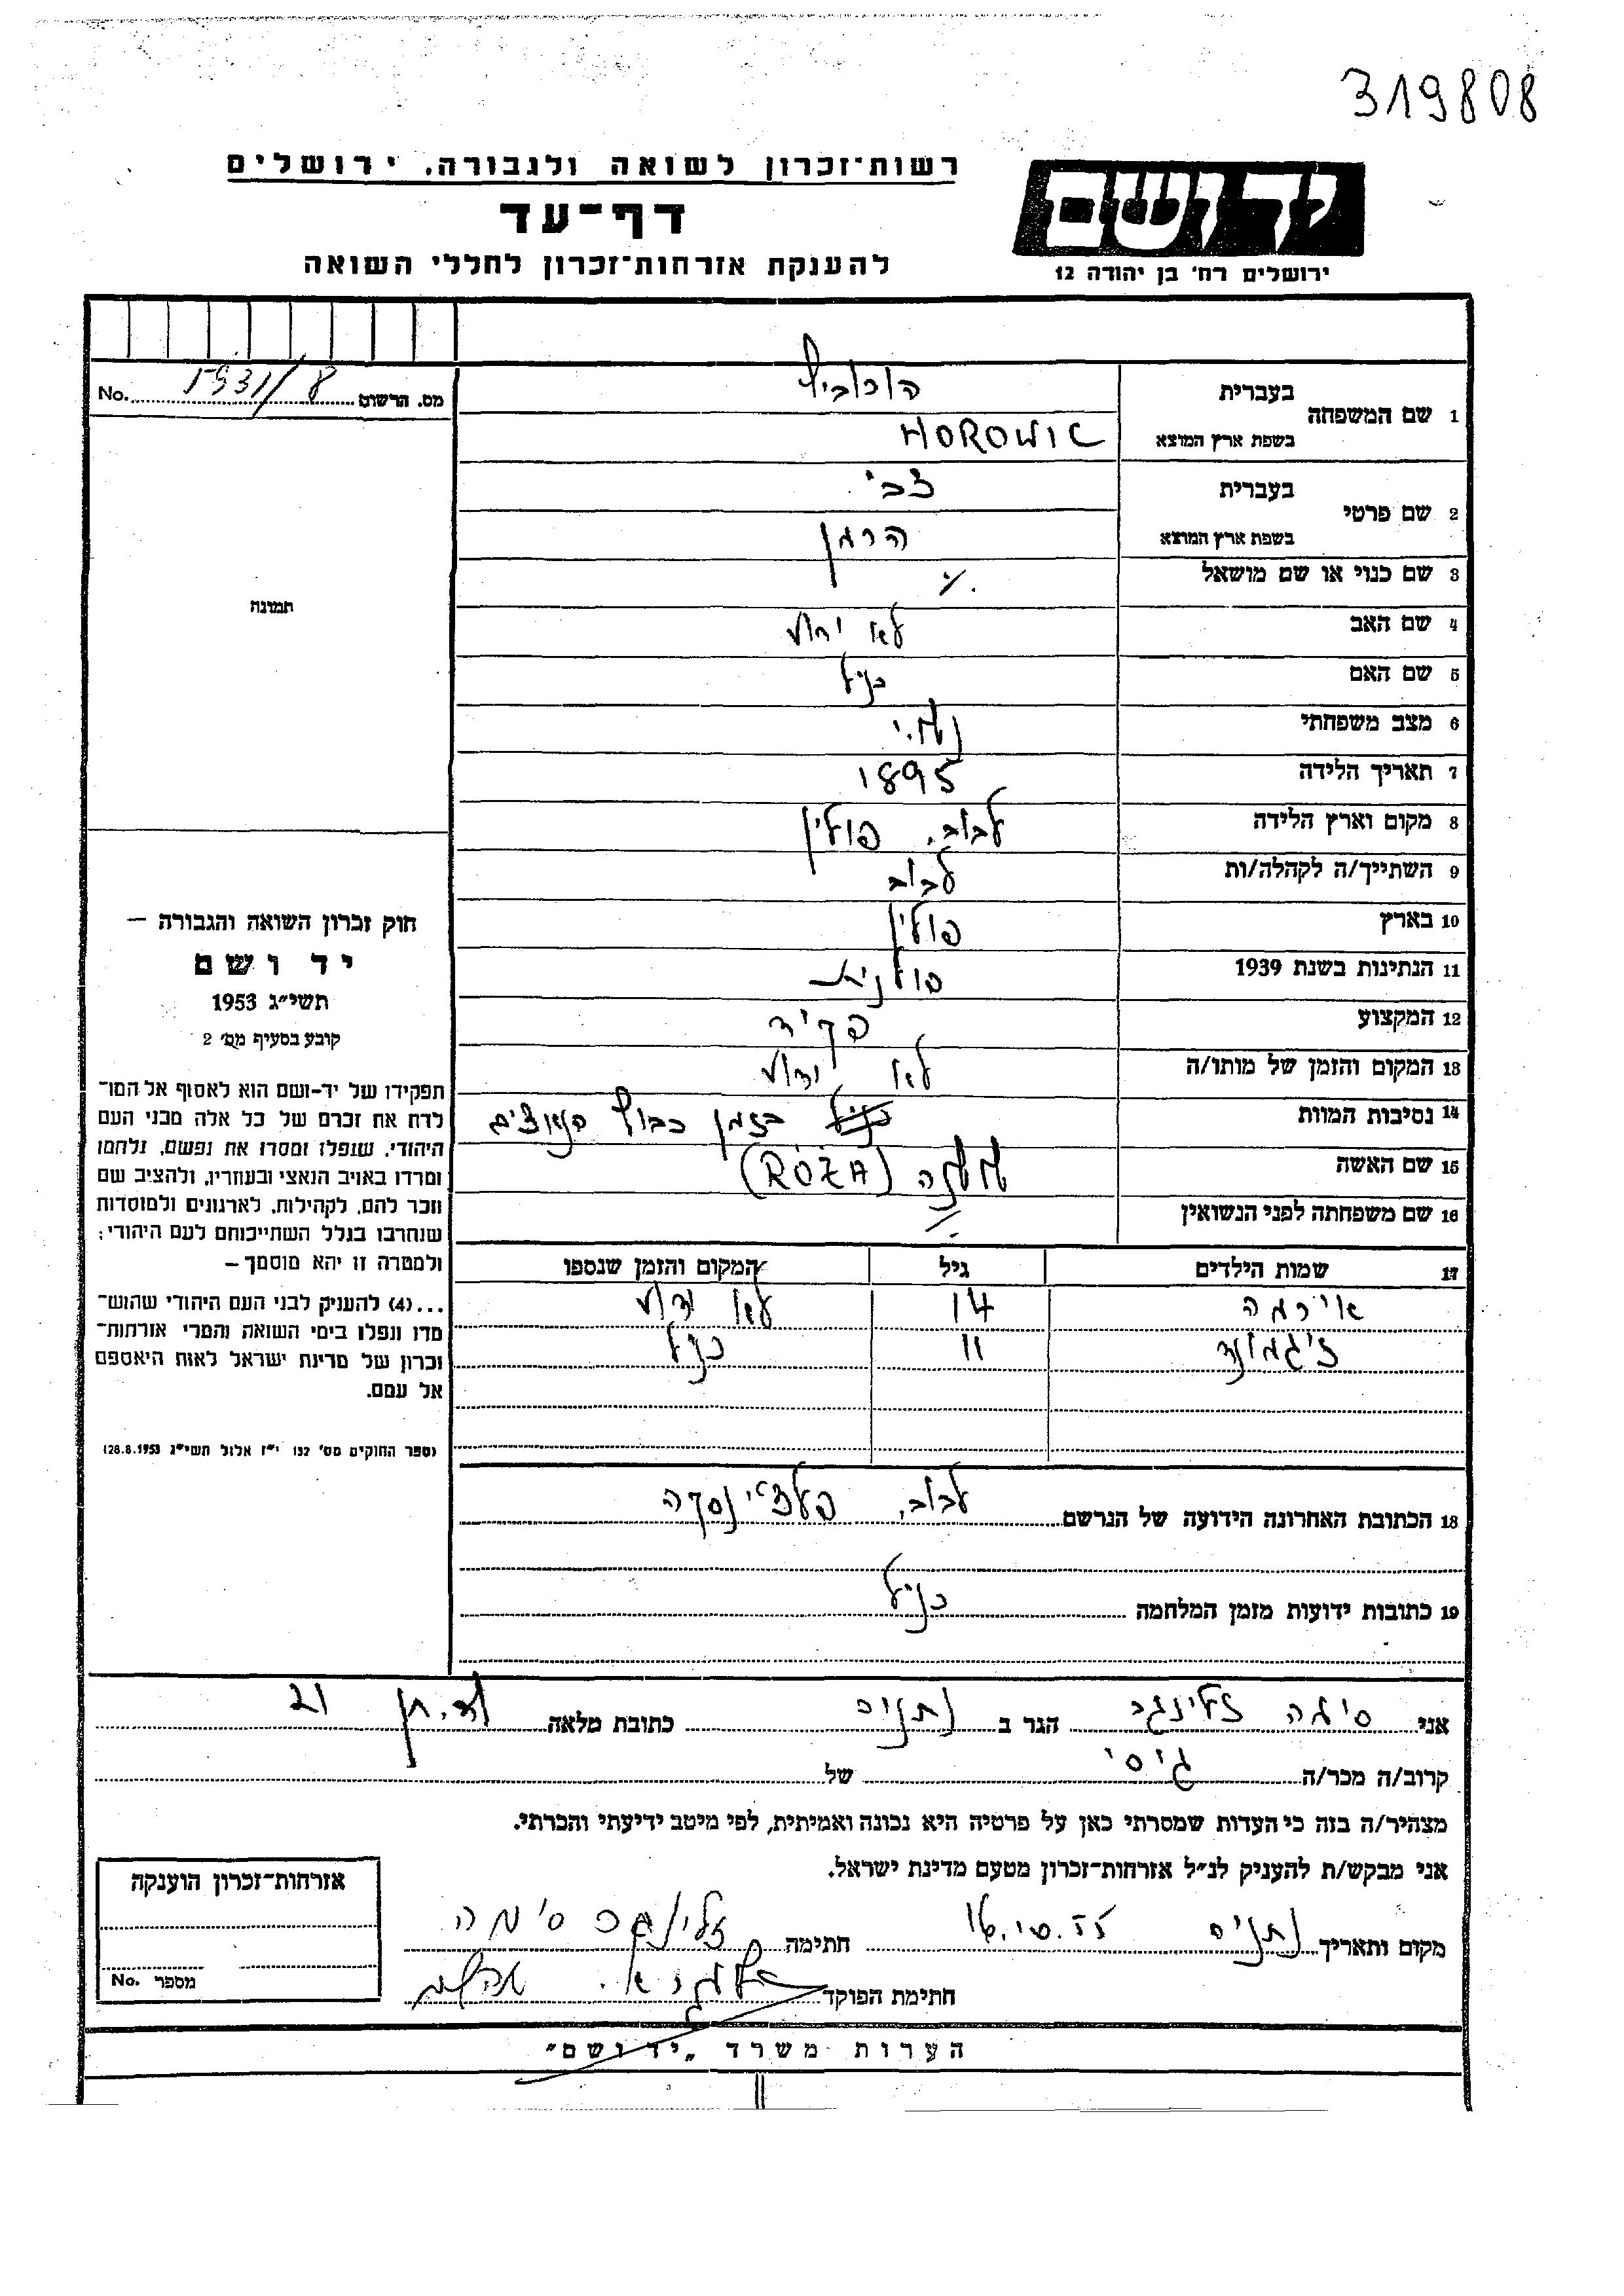 319808
רשות־זכרון לשואה ולגבורה, ירושלים
יד ושם
דף־עד
להענקת אזרחות־זכרון לחללי השואה
ירושלים רח' בן יהודה 12
מס. הרשום 1931/8 No.
1 שם המשפחה בעברית הורוביץ
בשפת ארץ המוצא HOROWIC
2 שם פרטי בעברית צבי
בשפת ארץ המוצא הרמן
3 שם כנוי או שם מושאל
תמונה
4 שם האב לא ידוע
5 שם האם כנ"ל
6 מצב משפחתי נשוי
7 תאריך הלידה 1895
8 מקום וארץ הלידה לבוב, פולין
9 השתייך/ה לקהלה/ות לבוב
10 בארץ פולין
11 הנתינות בשנת 1939 פולנית
12 המקצוע פקיד
13 המקום והזמן של מותו/ה לא ידוע
14 נסיבות המוות כנ"ל בזמן כבוש הנאצים
15 שם האשה (RÓŻA)
16 שם משפחתה לפני הנשואין
17 שמות הילדים גיל המקום והזמן שנספו
אירמה 14 לא ידוע
זיגמונד 11 כנ"ל
18 הכתובת האחרונה הידועה של הנרשם לבוב,
19 כתובות ידועות מזמן המלחמה כנ"ל
חוק זכרון השואה והגבורה –
יד ושם
תשי"ג 1953
קובע בסעיף מס' 2
תפקידו של יד-ושם הוא לאסוף אל המו־
לדת את זכרם של כל אלה מבני העם
היהודי, שנפלו ומסרו את נפשם, נלחמו
ומרדו באויב הנאצי ובעוזריו, ולהציב שם
וזכר להם, לקהילות, לארגונים ולמוסדות
שנחרבו בגלל השתייכותם לעם היהודי;
ולמטרה זו יהא מוסמך –
...(4) להעניק לבני העם היהודי שהוש־
מדו ונפלו בימי השואה והמרי אזרחות־
זכרון של מדינת ישראל לאות היאספם
אל עמם.
(ספר החוקים מס' 132 י"ז אלול תשי"ג 28.8.1953)
אני סימה זלינגר הגר ב נתניה כתובת מלאה 21
קרוב/ה מכר/ה גיסי של
מצהיר/ה בזה כי העדות שמסרתי כאן על פרטיה היא נכונה ואמיתית, לפי מיטב ידיעתי והכרתי.
אני מבקש/ת להעניק לנ"ל אזרחות־זכרון מטעם מדינת ישראל.
מקום ותאריך נתניה 16.10.55 חתימה סימה
חתימת הפוקד
אזרחות־זכרון הוענקה
מספר No.
הערות משרד „יד ושם"